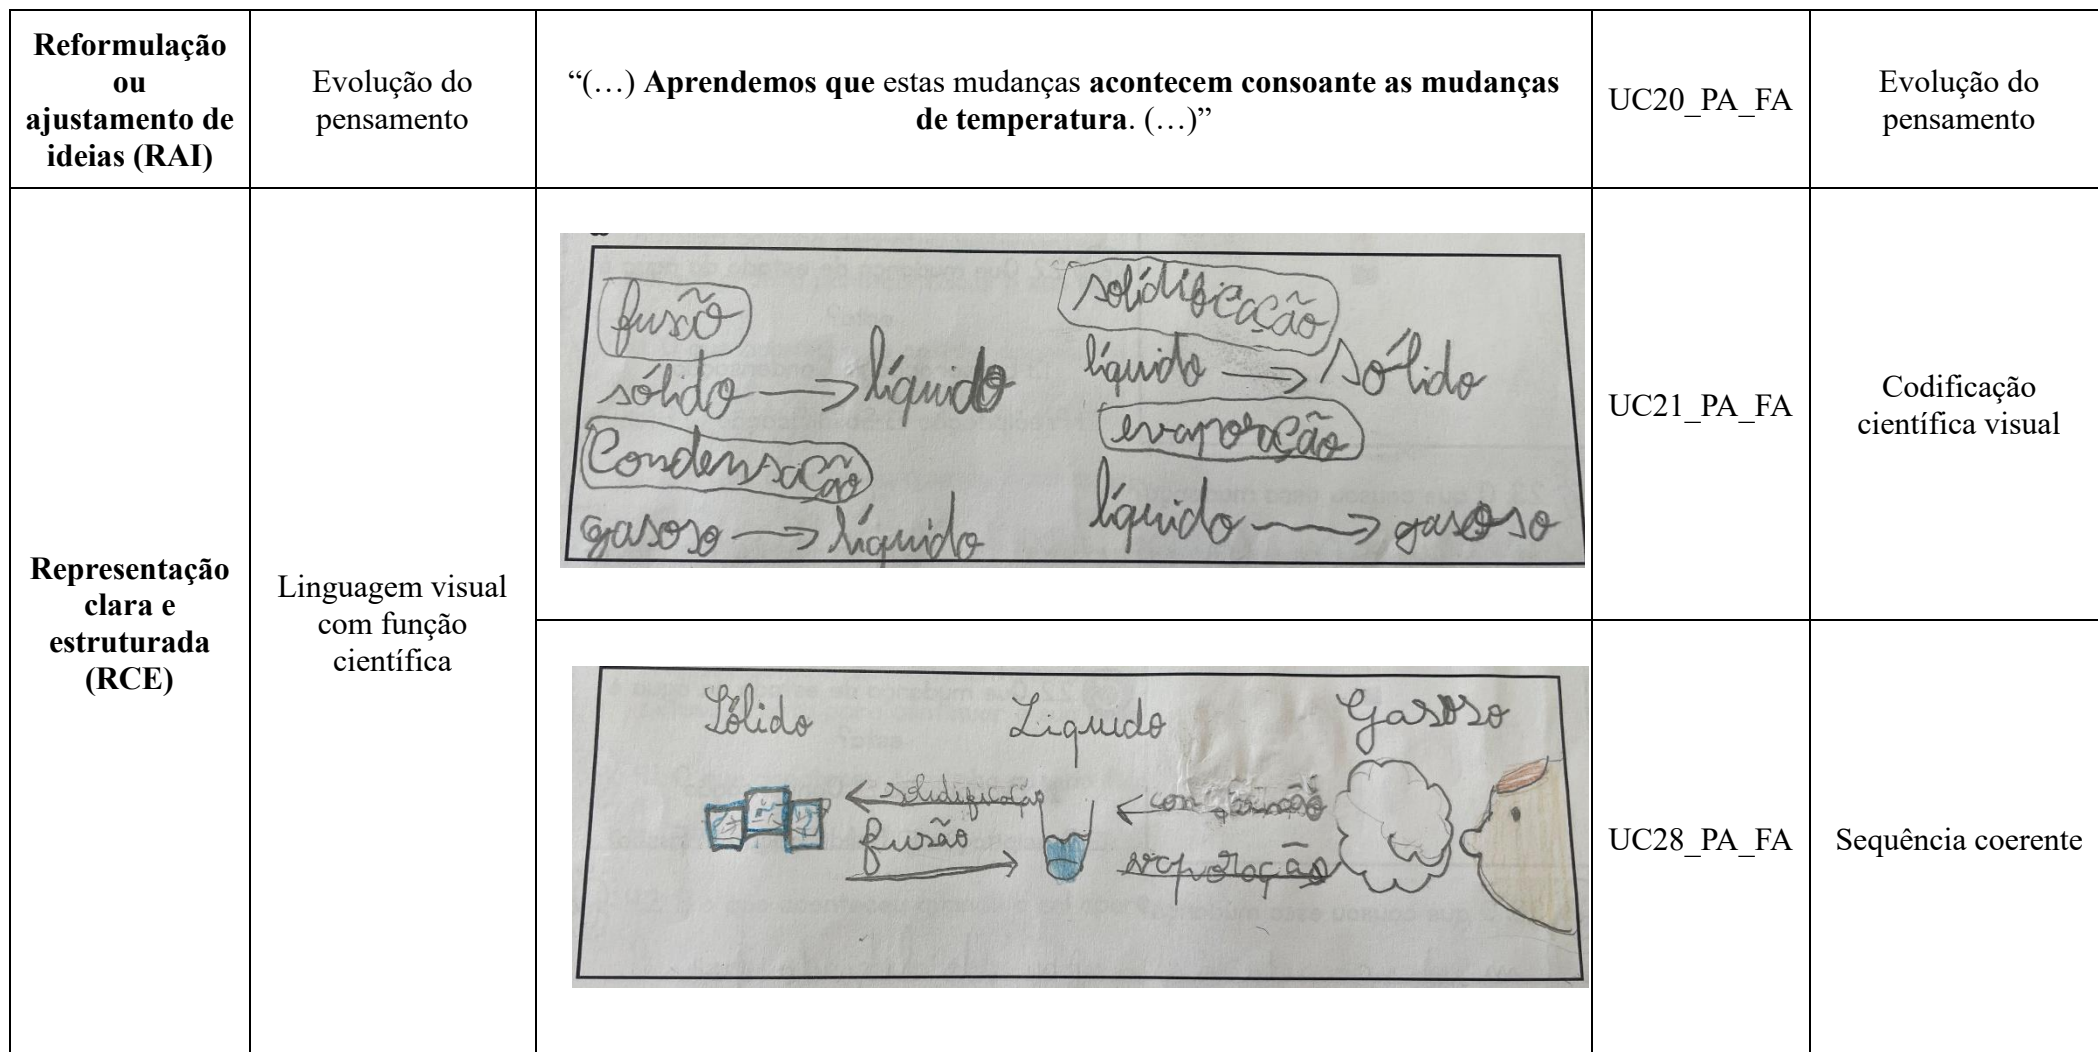 Reformulação
ou
ajustamento de
ideias (RAI)
Evolução do
pensamento
“(…) Aprendemos que estas mudanças acontecem consoante as mudanças
de temperatura. (…)”
UC20_PA_FA
Evolução do
pensamento
Representação
clara e
estruturada
(RCE)
Linguagem visual
com função
científica
fusão
sólido → líquido
Condensação
gasoso → líquido
solidificação
líquido → sólido
evaporação
líquido → gasoso
UC21_PA_FA
Codificação
científica visual
Sólido
Liquido
Gasoso
solidificação
fusão
evaporação
UC28_PA_FA
Sequência coerente